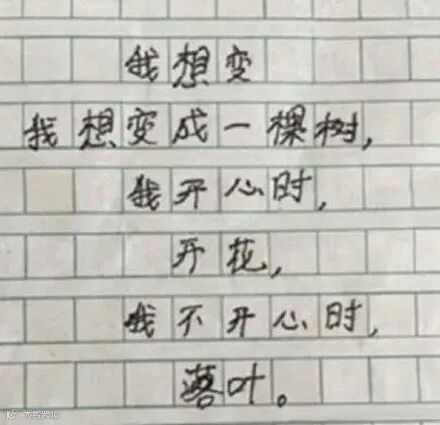 我想变
我想变成一棵树，
我开心时，
开花，
我不开心时，
落叶。